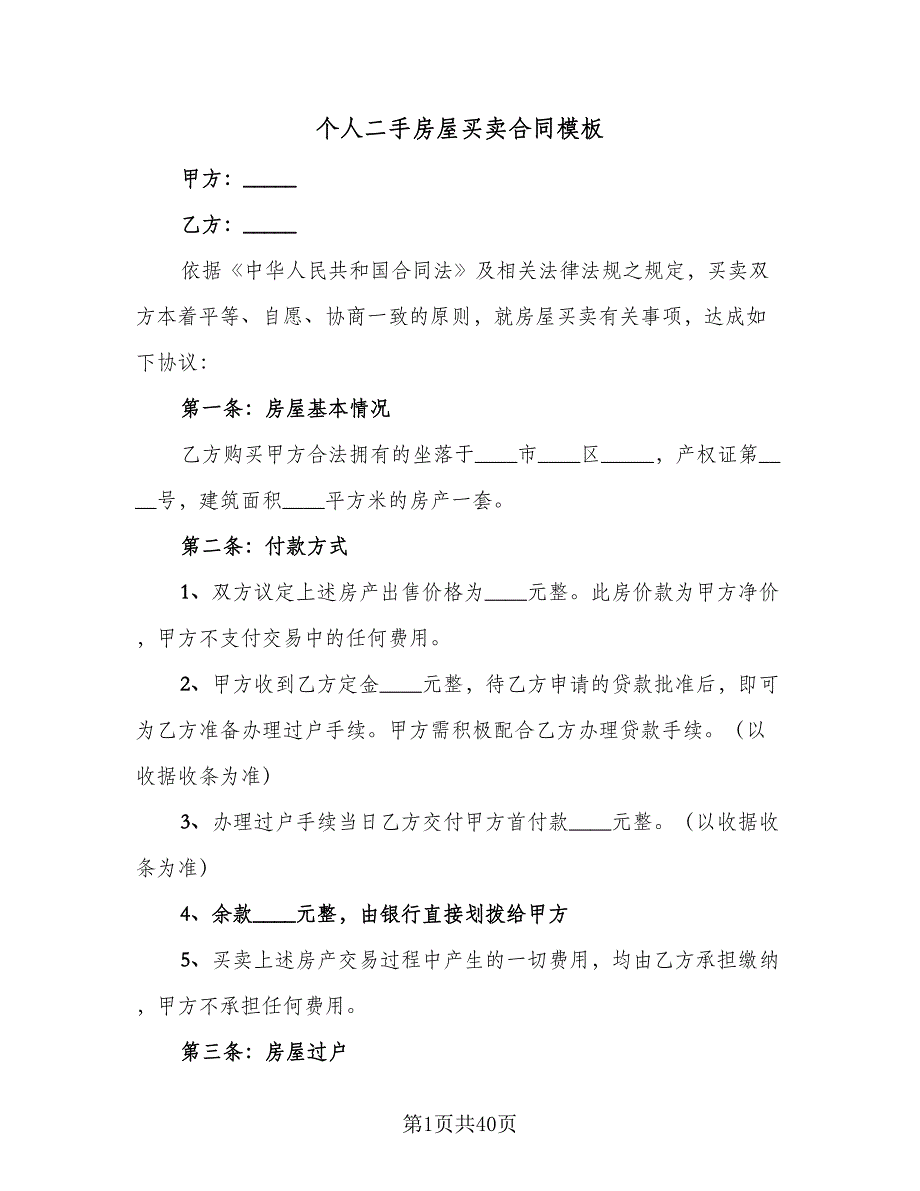 个人二手房屋买卖合同模板
甲方：_____
乙方：_____
依据《中华人民共和国合同法》及相关法律法规之规定，买卖双
方本着平等、自愿、协商一致的原则，就房屋买卖有关事项，达成如
下协议：
第一条：房屋基本情况
乙方购买甲方合法拥有的坐落于____市____区_____，产权证第__
__号，建筑面积____平方米的房产一套。
第二条：付款方式
1、双方议定上述房产出售价格为____元整。此房价款为甲方净价
，甲方不支付交易中的任何费用。
2、甲方收到乙方定金____元整，待乙方申请的贷款批准后，即可
为乙方准备办理过户手续。甲方需积极配合乙方办理贷款手续。（以
收据收条为准）
3、办理过户手续当日乙方交付甲方首付款____元整。（以收据收
条为准）
4、余款____元整，由银行直接划拨给甲方
5、买卖上述房产交易过程中产生的一切费用，均由乙方承担缴纳
，甲方不承担任何费用。
第三条：房屋过户
第1页共40页